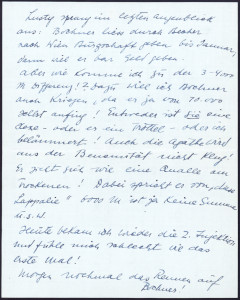 Lusty sprang im letzten Augenblick
aus: Bochner liess durch Hecker
nach Wien Bürgschaft geben bis Januar,
dann will er bar Geld geben.
Aber wie komme ich zu der 3-4000
M Differenz! ? Dazu will ich Bochner
auch kriegen, da er ja von 10.000
selbst anfing! Entweder ist sie eine
oder ein Trottel - oder ich
belämmert! Auch die Apotheerd
aus der Benennität nicht klug!
Es geht ihr wie eine Qualle am
Trockenen! Dabei spricht er von
Lappalie" 6000 M ist ja keine Summe
u.s.w.
Heute bekam ich wieder die 2. Injektion
und fühle mich schlecht wie das
erste Mal!
Morgen nochmal das Rennen auf
Bochner!